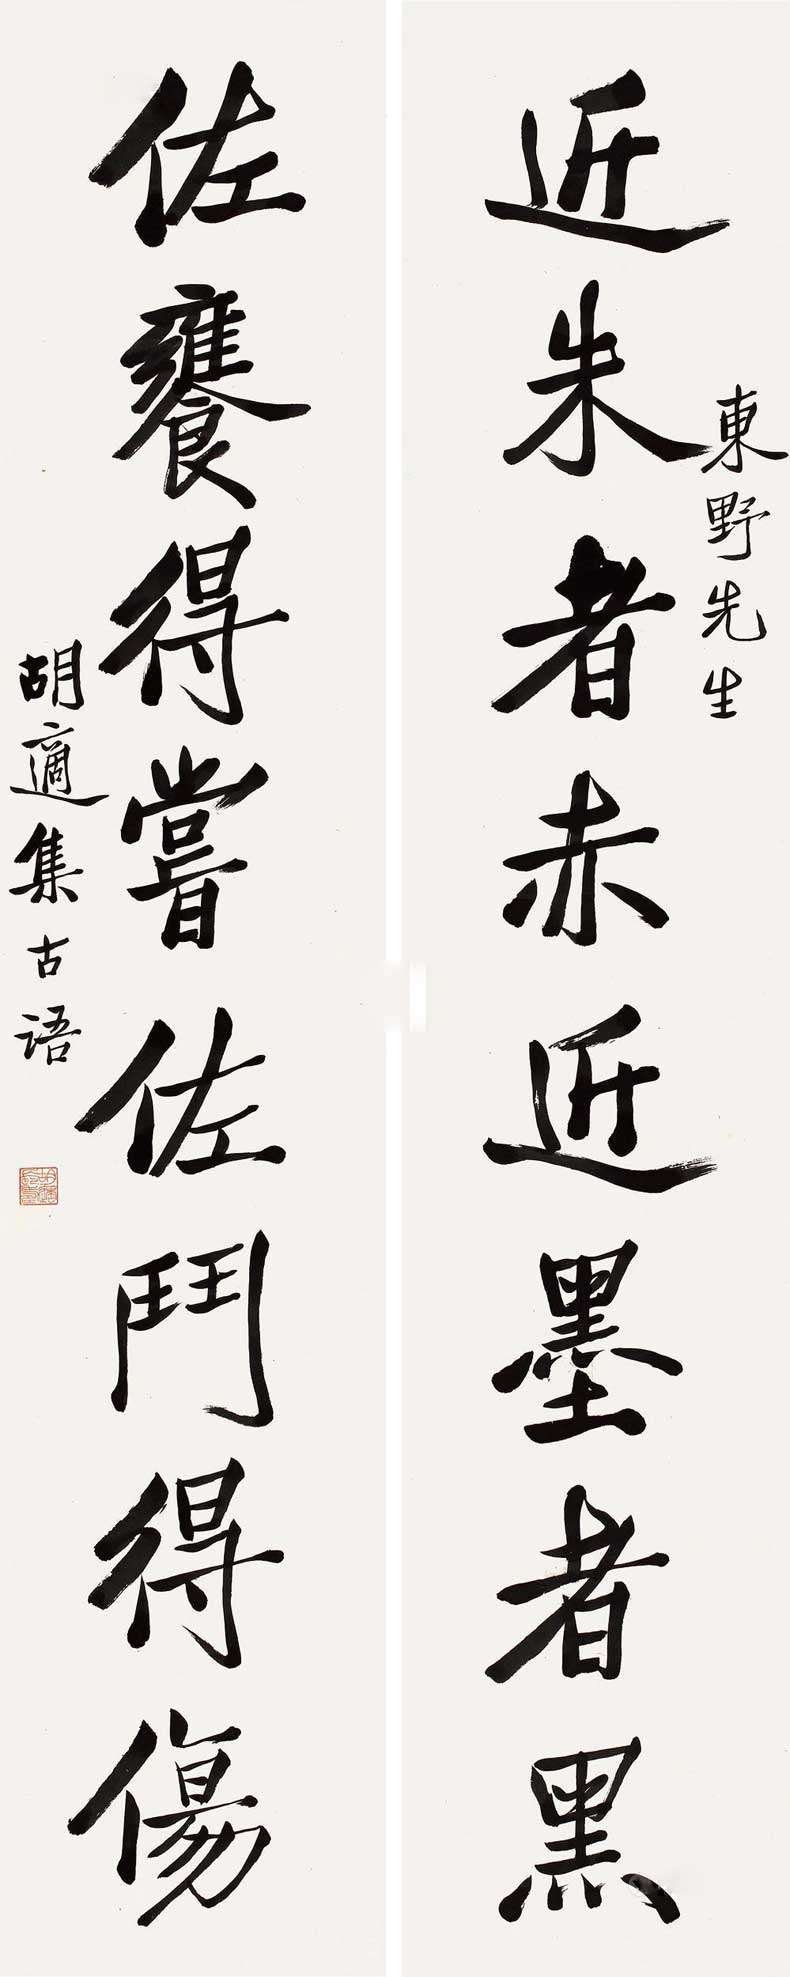 東野先生
近朱者赤近墨者黑
佐饔得嘗佐鬥得傷
胡適集古语